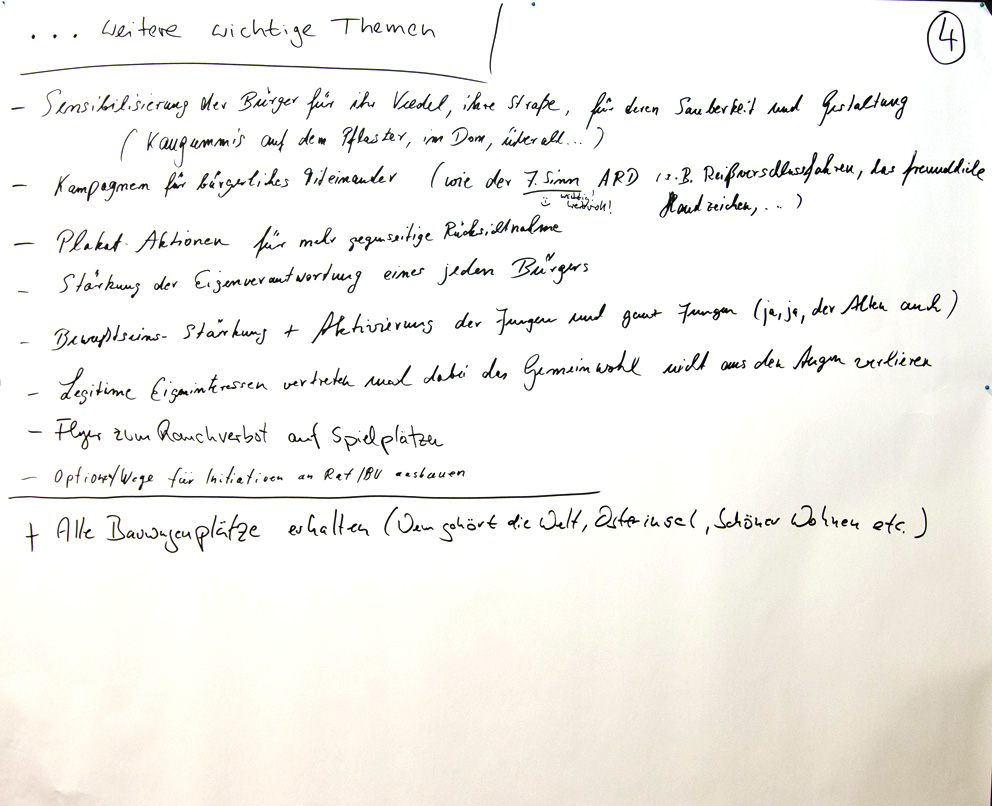 ... weitere wichtige Themen
4
- Sensibilisierung der Bürger für ihr Veedel, ihre Straße, für deren Sauberkeit und Gestaltung
(Kaugummis auf dem Pflaster, im Dom, überall...)
- Kampagnen für bürgerliches Miteinander (wie der 7. Sinn ARD z.B. Reißverschlussfahren, das freundliche
wichtig!
Handzeichen, ...)
- Plakat-Aktionen für mehr gegenseitige Rücksichtnahme
- Stärkung der Eigenverantwortung eines jeden Bürgers
- Bewußtseins-Stärkung + Aktivierung der Jungen und ganz Jungen (ja, ja, der Alten auch)
- Legitime Eigeninteressen vertreten und dabei das Gemeinwohl nicht aus den Augen verlieren
- Flyer zum Rauchverbot auf Spielplätzen
- Optionen/Wege für Initiativen an Rat/BV ausbauen
+ Alle Bauwagenplätze erhalten (Wem gehört die Welt, Osterinsel, Schöner Wohnen etc.)